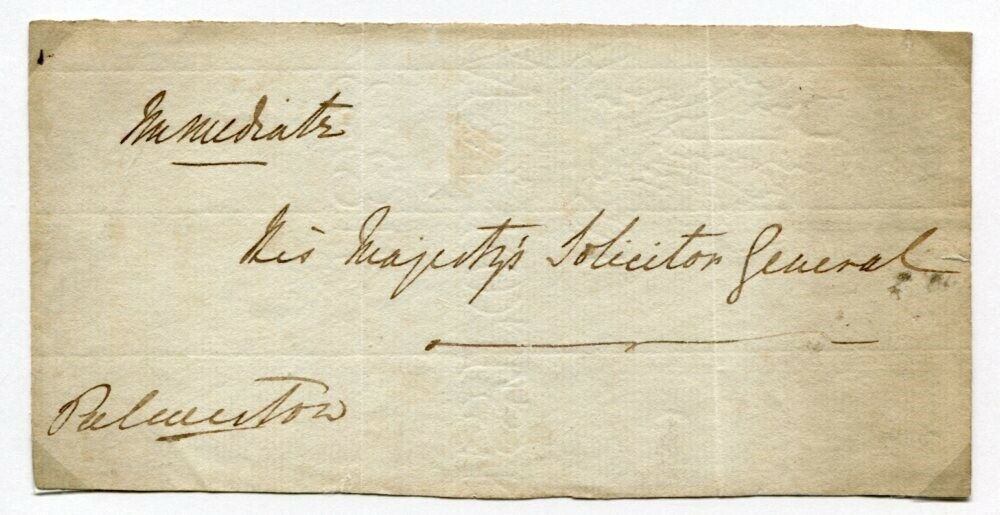 Immediate
His Majesty's Solicitor General
Palmerston